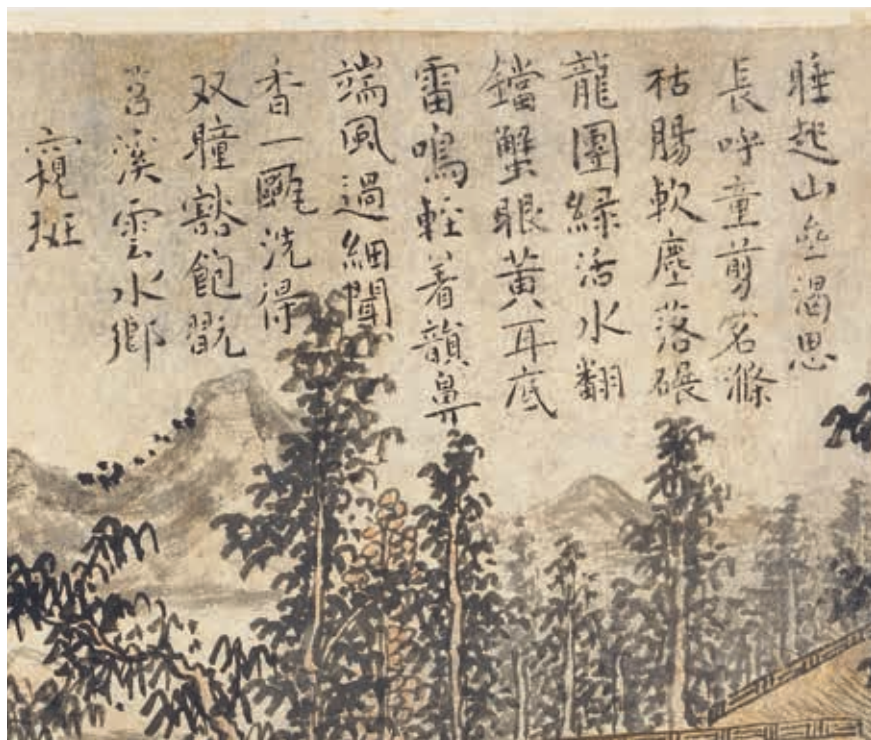 睡起山亝渴思
長呼童剪茗滌
枯腸軟塵落碾
龍團綠活水翻
鐺蟹眼黃耳底
雷鳴輕着韻鼻
端風過細聞
香一甌洗得
双瞳豁飽翫
苕溪雲水鄉
窺班